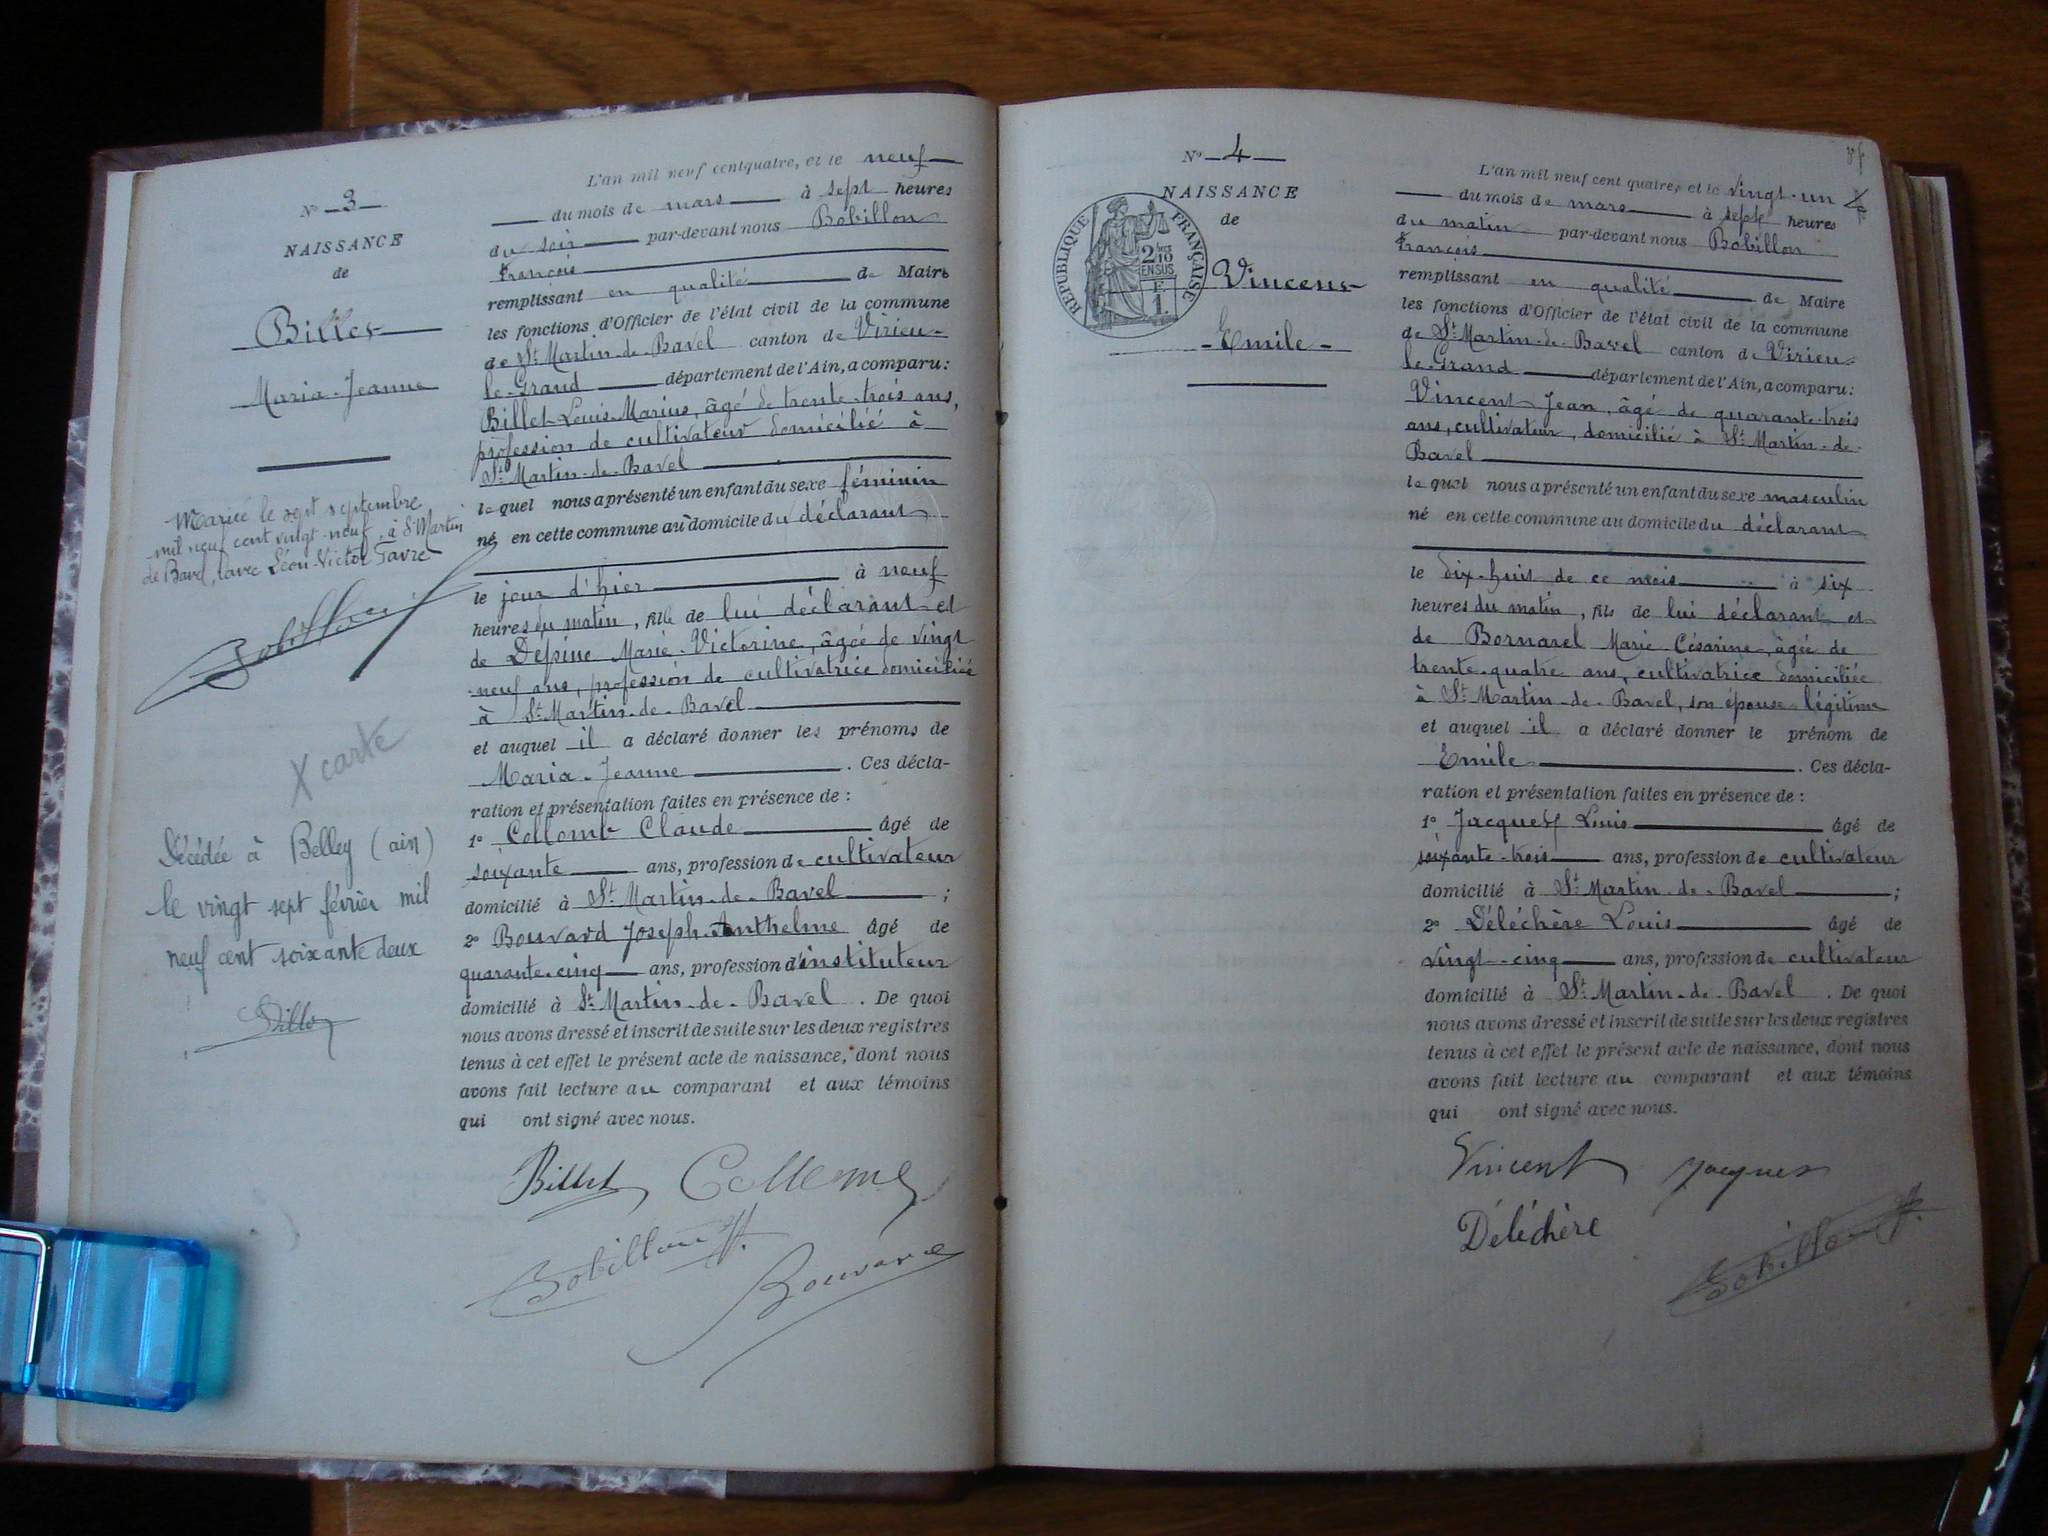 N° 3
NAISSANCE
de
Billet
Maria-Jeanne
Mariée le sept septembre
mil neuf cent vingt-neuf, à St Martin
de Bavel, avec Léon-Victor Favre
Bobillon
X carte
Décédée à Belley (ain)
le vingt sept février mil
neuf cent soixante deux
L'an mil neuf cent quatre, et le neuf
du mois de mars à sept heures
du soir par-devant nous Bobillon
François
remplissant en qualité de Maire
les fonctions d'Officier de l'état civil de la commune
de St Martin-de-Bavel canton de Virieu-
le-Grand département de l'Ain, a comparu:
Billet Louis-Marius, âgé de trente-trois ans,
profession de cultivateur domicilié à
St Martin-de-Bavel
lequel nous a présenté un enfant du sexe féminin
né en cette commune au domicile du déclarant
le jour d'hier à neuf
heures du matin, fille de lui déclarant et
de Dépine Marie-Victorine, âgée de vingt
-neuf ans, profession de cultivatrice domiciliée
à St Martin-de-Bavel
et auquel il a déclaré donner les prénoms de
Maria-Jeanne. Ces décla-
ration et présentation faites en présence de :
1° Collomb Claude âgé de
soixante ans, profession de cultivateur
domicilié à St Martin-de-Bavel ;
2° Bouvard Joseph-Anthelme âgé de
quarante-cinq ans, profession d'instituteur
domicilié à St Martin-de-Bavel. De quoi
nous avons dressé et inscrit de suite sur les deux registres
tenus à cet effet le présent acte de naissance, dont nous
avons fait lecture au comparant et aux témoins
qui ont signé avec nous.
Billet
Bobillon F.
Bouvard
N° 4
NAISSANCE
de
RÉPUBLIQUE FRANÇAISE
2/10
EN SUS
F.
1.
Vincent
-Emile-
L'an mil neuf cent quatre, et le vingt-un
du mois de mars à sept heures
du matin par-devant nous Bobillon
François
remplissant en qualité de Maire
les fonctions d'Officier de l'état civil de la commune
de St Martin-de-Bavel canton de Virieu-
le-Grand département de l'Ain, a comparu:
Vincent Jean, âgé de quarante-trois
ans, cultivateur, domicilié à St Martin-de-
Bavel
lequel nous a présenté un enfant du sexe masculin
né en cette commune au domicile du déclarant
le dix-huit de ce mois à six
heures du matin, fils de lui déclarant et
de Bornarel Marie Césarine, âgée de
trente-quatre ans, cultivatrice domiciliée
à St Martin-de-Bavel, son épouse légitime
et auquel il a déclaré donner le prénom de
Emile. Ces décla-
ration et présentation faites en présence de :
1° Jacques Louis âgé de
soixante-trois ans, profession de cultivateur
domicilié à St Martin-de-Bavel ;
2° Déléchère Louis âgé de
vingt-cinq ans, profession de cultivateur
domicilié à St Martin-de-Bavel. De quoi
nous avons dressé et inscrit de suite sur les deux registres
tenus à cet effet le présent acte de naissance, dont nous
avons fait lecture au comparant et aux témoins
qui ont signé avec nous.
Vincent Jacques
Déléchère
Bobillon F.